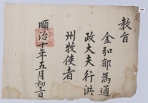 教旨
金知郁爲通
政大夫行洪
州牧使者
順治十年五月初三日